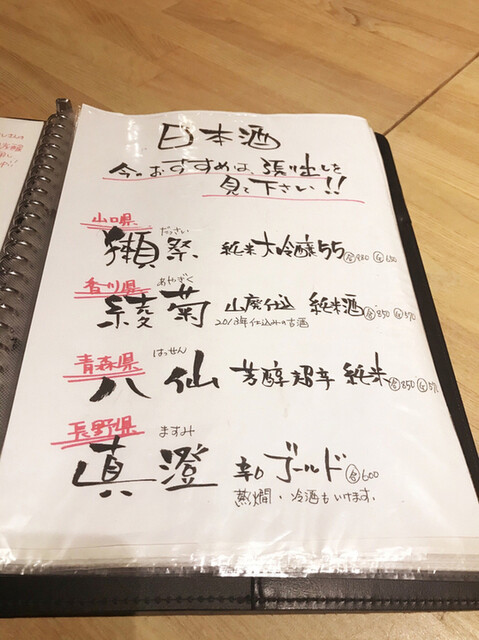 日本酒
今、おすすめは、張り出しを
見て下さい!!
山口県
だっさい
獺祭 純米大吟醸55
香川県
あやぎく
綾菊 山廃仕込 純米酒 合850
2013年仕込みの古酒
青森県
はっせん
八仙 芳醇超辛 純米 合850
長野県
ますみ
真澄 辛口ゴールド 合600
蒸燗・冷酒もいけます。